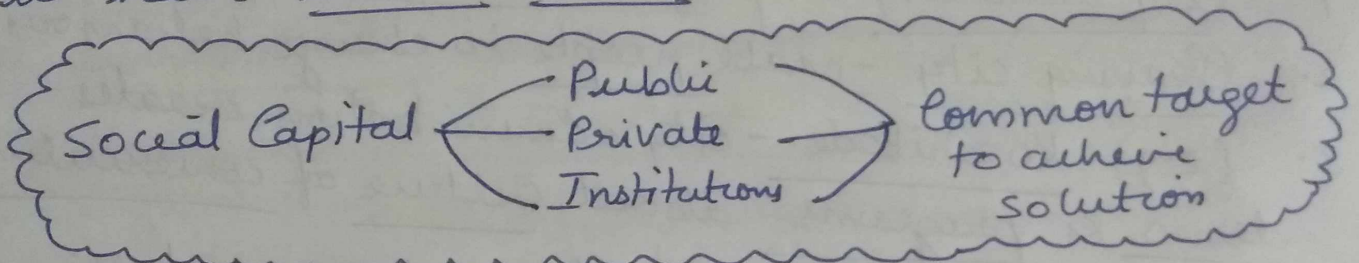 Social Capital
Public
Private
Institutions
Common target
to acheive
solution